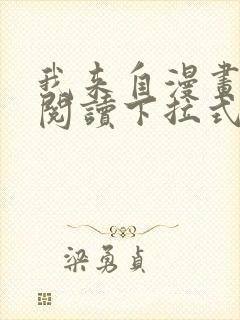 我來自漫畫
閱讀下拉式
梁勇貞